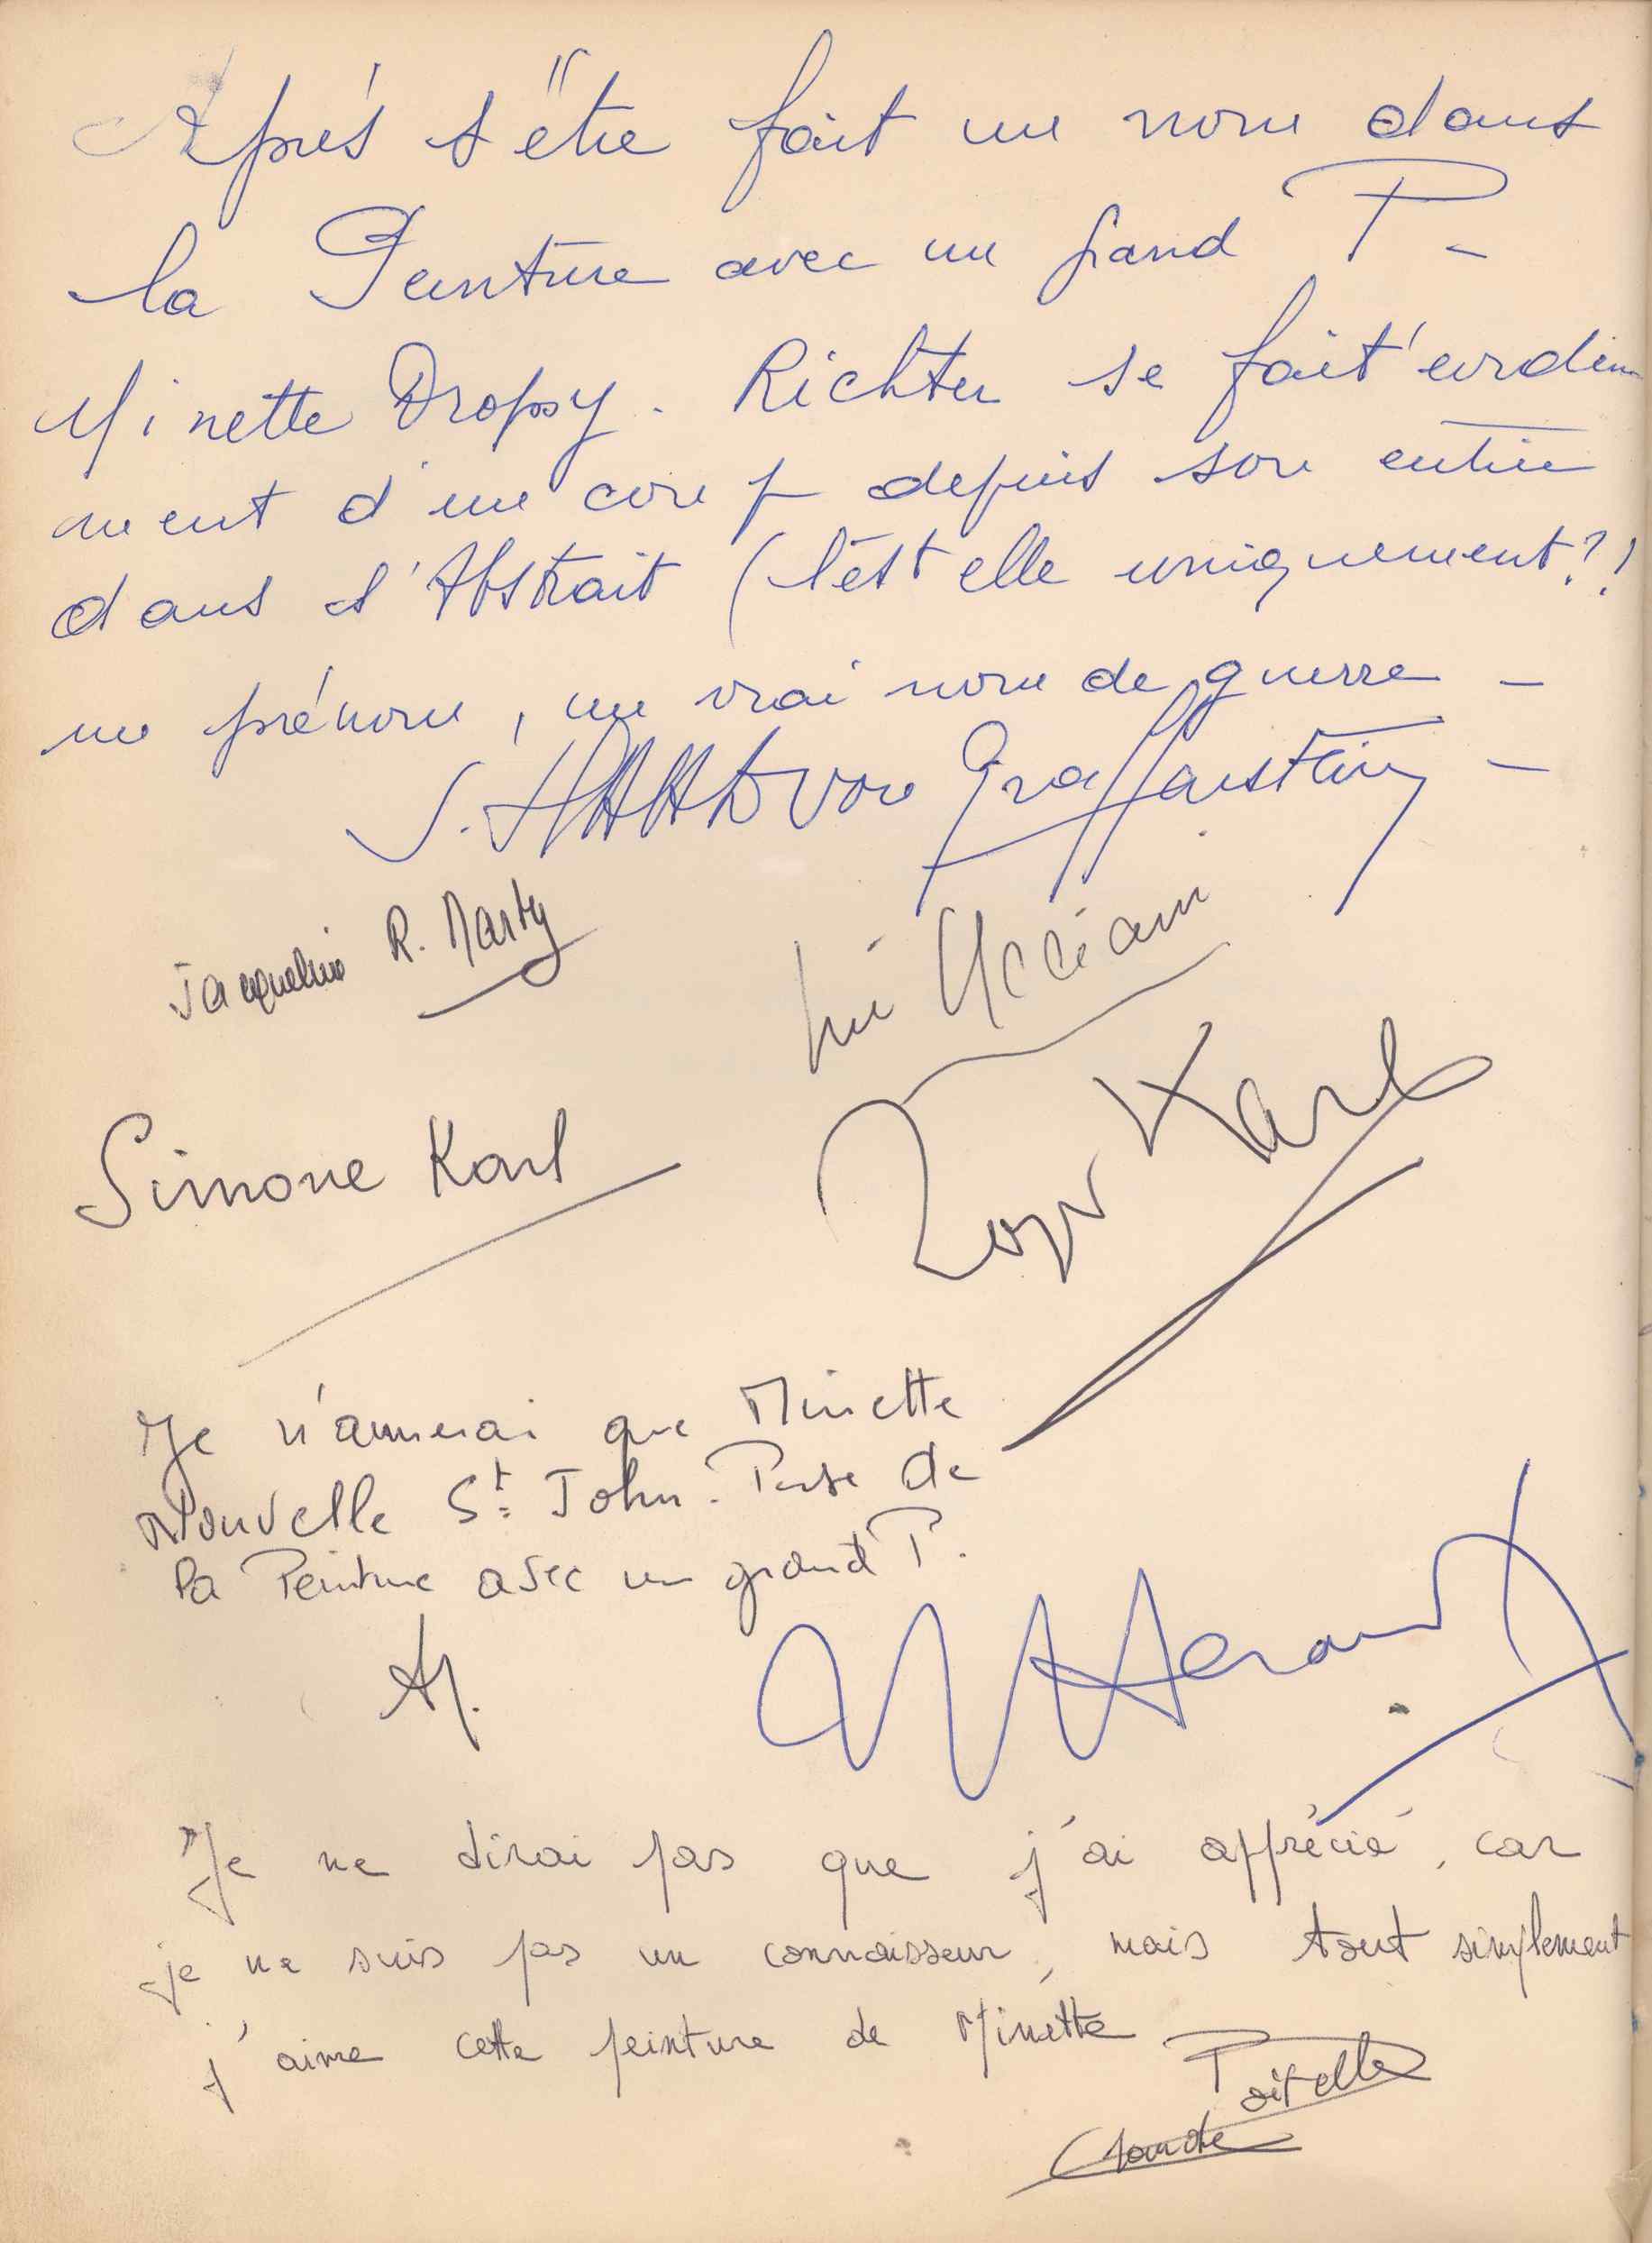 Après s'être fait un nom dans
la Peinture avec un grand P -
Minette Dropsy. Richter se fait
d'un coup depuis son entrée
dans l'Abstrait (l'est elle uniquement?)
un prénom, un vrai nom de guerre -
von Graffenstein -
Jacqueline R. Marty
Simone Karl
Roger Karl
Je n'aimerai que Minette
Nouvelle St. John. Perse de
la Peinture avec un grand P.
Je ne dirai pas que j'ai apprécié, car
je ne suis pas un connaisseur, mais tout simplement
j'aime cette peinture de Minette
Claude